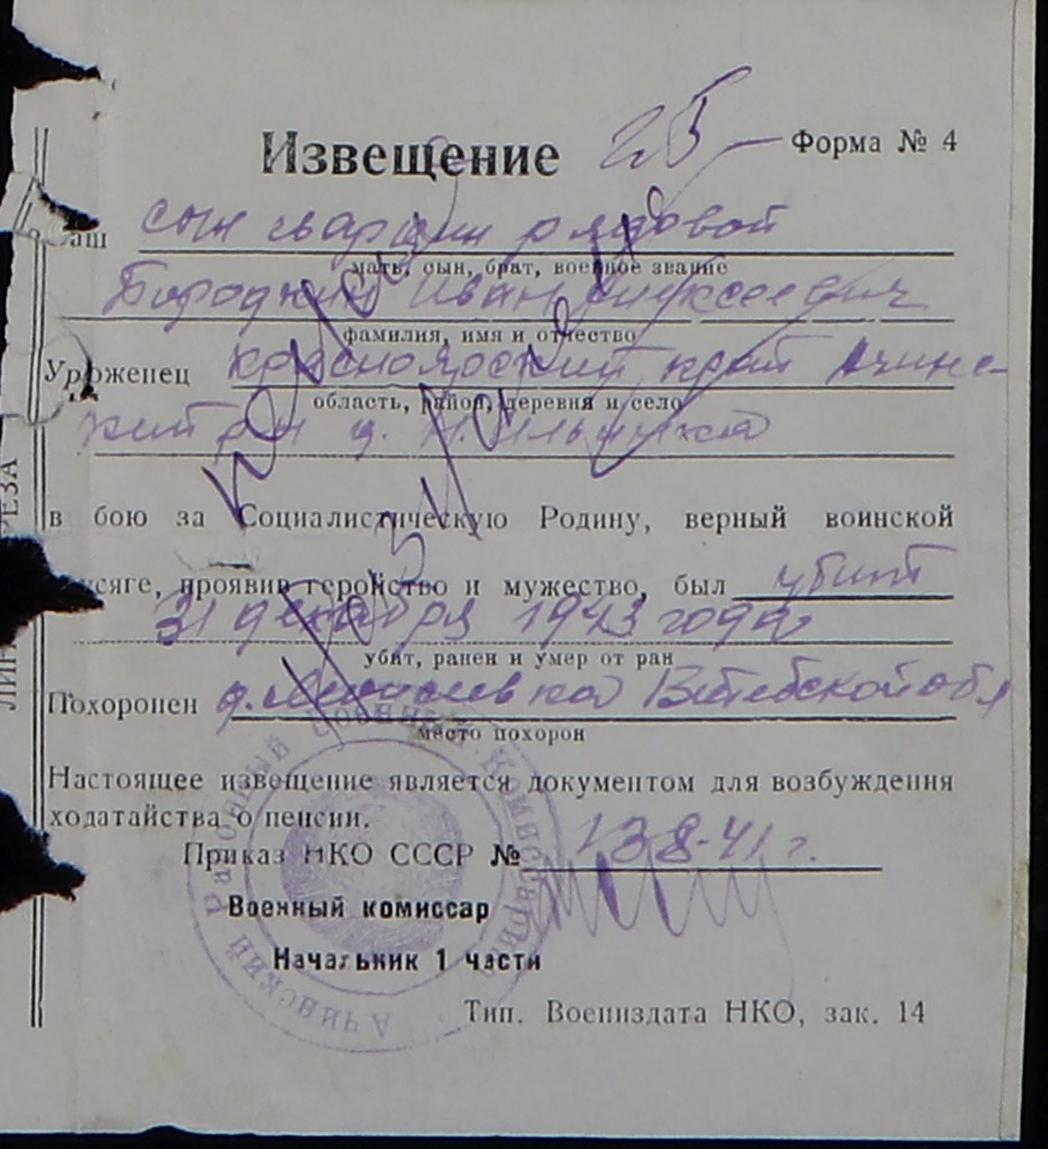 Извещение 25 Форма № 4
Ваш сын гвардии рядовой
мать, сын, брат, военное звание
Бородкин Иван Алексеевич
фамилия, имя и отчество
Уроженец Красноярский край Ачинс-
область, район, деревня и село
кий р-н д.
в бою за Социалистическую Родину, верный воинской
присяге, проявив геройство и мужество, был убит
31 декабря 1943 года
убит, ранен и умер от ран
Похоронен д. Витебской обл
место похорон
Настоящее извещение является документом для возбуждения
ходатайства о пенсии.
Приказ НКО СССР № 138-41 г.
Военный комиссар
Начальник 1 части
Ачинский Районный Военный Комиссариат
Тип. Воениздата НКО, зак. 14